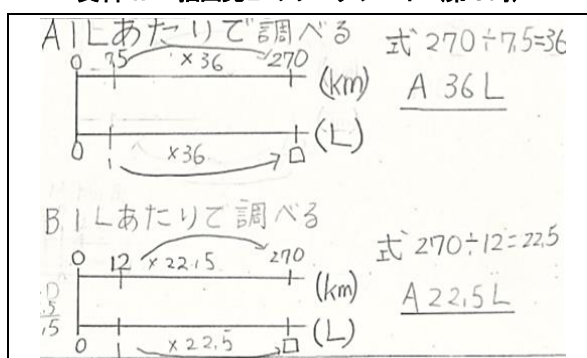 A 1Lあたりで調べる
0 7.5 ×36 270 (km)
0 1 ×36 □ (L)
式 270÷7.5=36
A 36L
B 1Lあたりで調べる
0 12 ×22.5 270 (km)
0 1 ×22.5 □ (L)
式 270÷12=22.5
A 22.5L